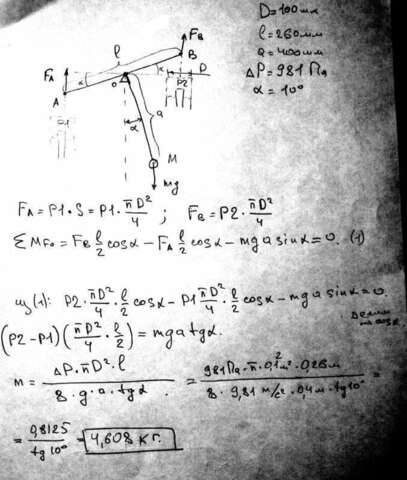 D=100мм
l=260мм
a=400мм
ΔP=981 Па
α=10°
F_B
l
B
F_A
α
D
P2
A
O
a
α
M
mg
F_A=P1·S=P1·πD²/4 ; F_B=P2·πD²/4
ΣM_Fo=F_B l/2 cosα-F_A l/2 cosα-mga sinα=0. (1)
из(1): P2·πD²/4·l/2 cosα-P1 πD²/4·l/2 cosα-mga sinα=0.
делим на cosα
(P2-P1)(πD²/4·l/2)=mga tgα.
m=ΔP·πD²·l/8·g·a·tgα=981Па·π·0,1²м²·0,26м/8·9,81м/с²·0,4м·tg10°=
=0,8125/tg10°=4,608 кг.